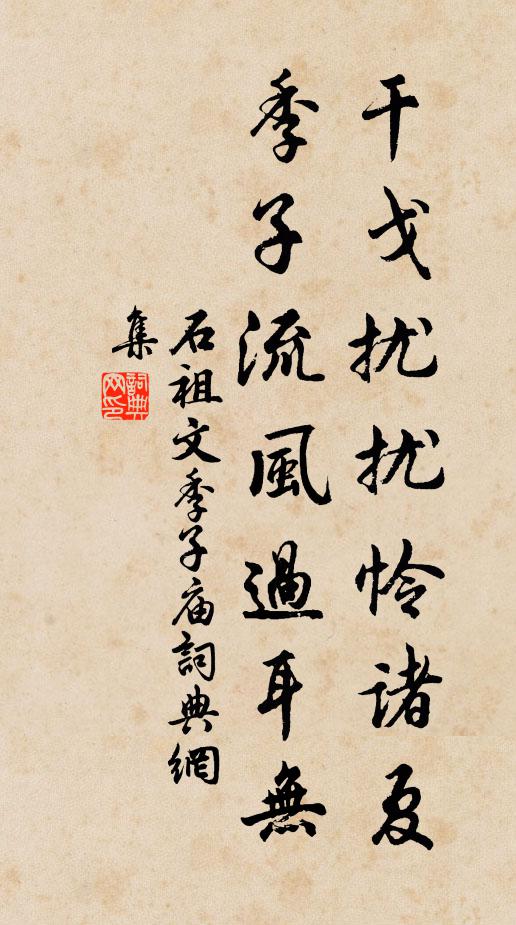 干戈扰扰怜诸夏
季子流風過耳無
石祖文季子庙詞典網
集
詞典网印